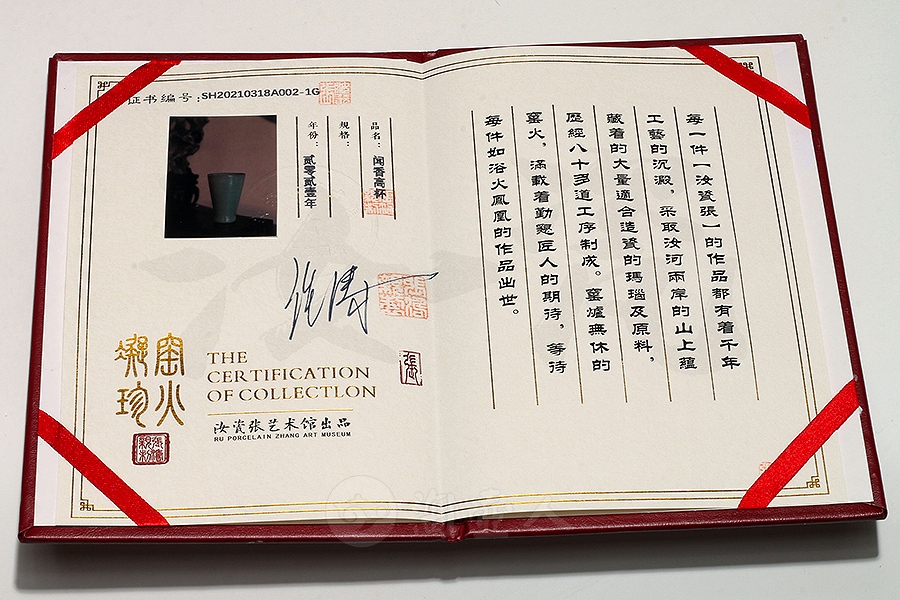 证书编号:SH20210318A002-1G
品名：闻香高杯
规格：
年份：贰零贰壹年
窑火
凝珍
THE
CERTIFICATION
OF COLLECTLON
汝瓷张艺术馆出品
RU PORCELAIN ZHANG ART MUSEUM
每一件【汝瓷張】的作品都有着千年
工藝的沉澱，采取汝河兩岸的山上蘊
藏着的大量適合造瓷的瑪瑙及原料，
歷經八十多道工序制成。窰爐無休的
窰火，滿載着勤懇匠人的期待，等待
每件如浴火鳳凰的作品出世。